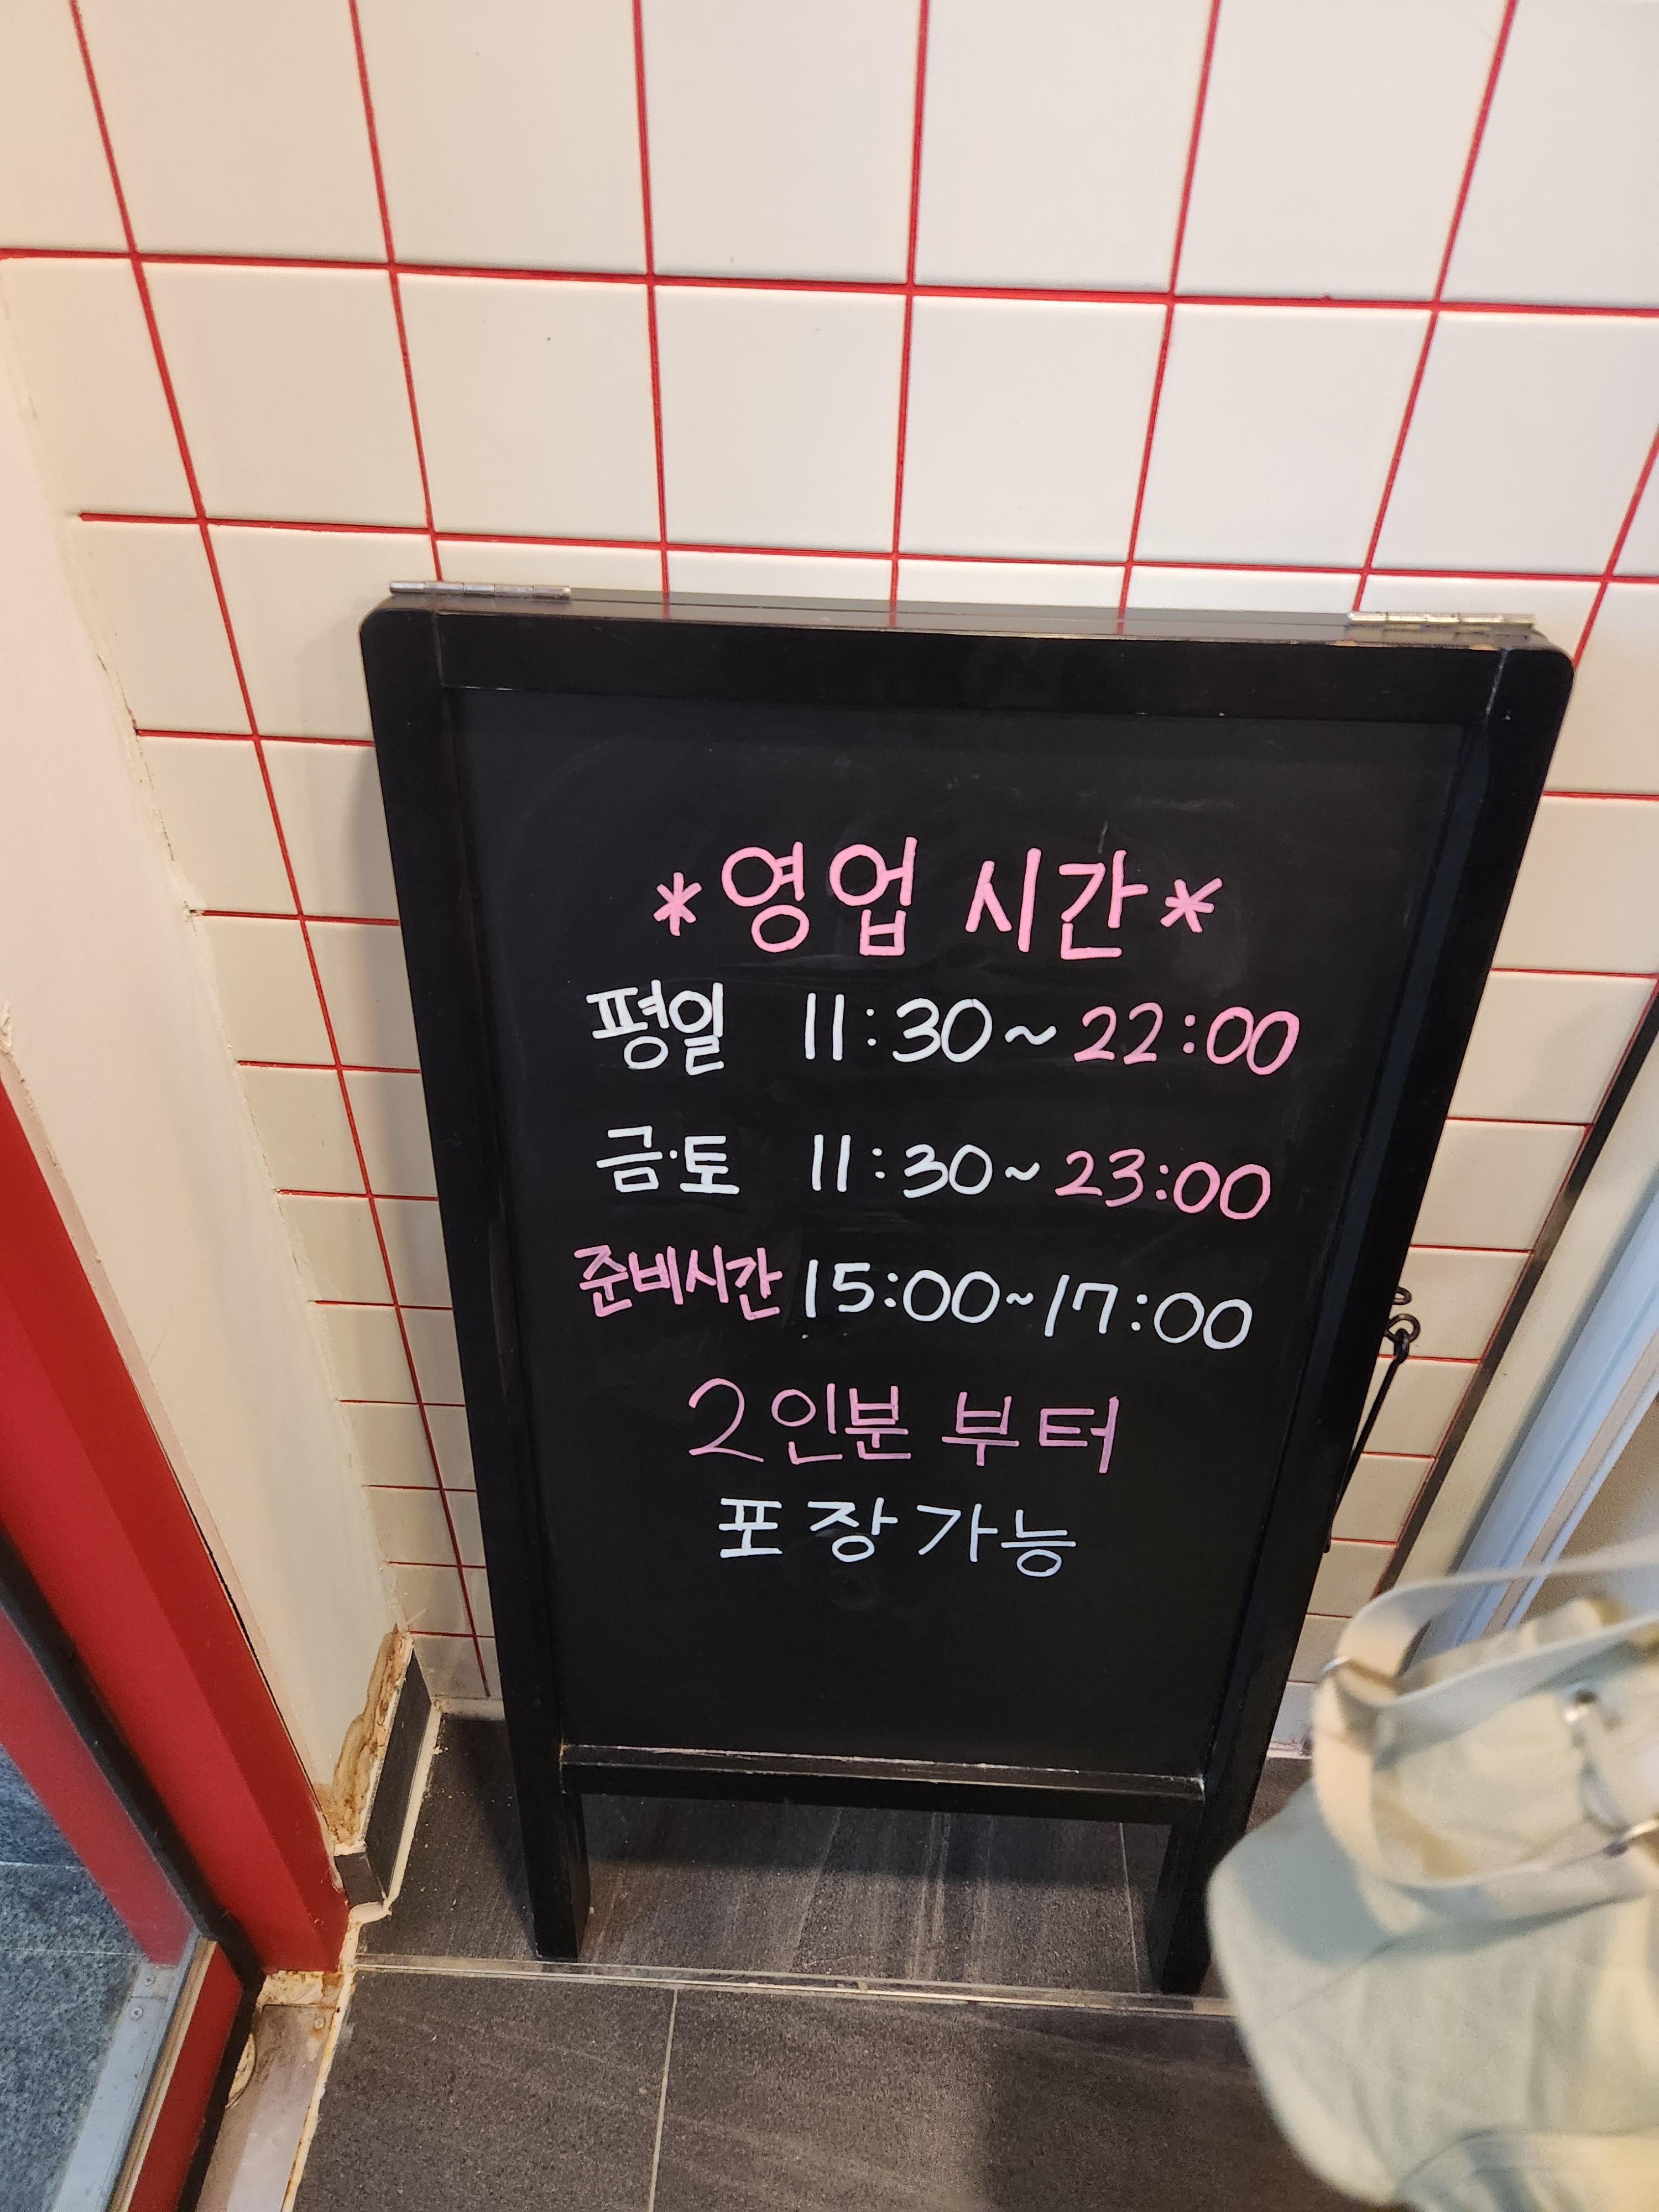 *영업 시간*
평일 11:30~22:00
금·토 11:30~23:00
준비시간 15:00~17:00
2인분 부터
포장가능